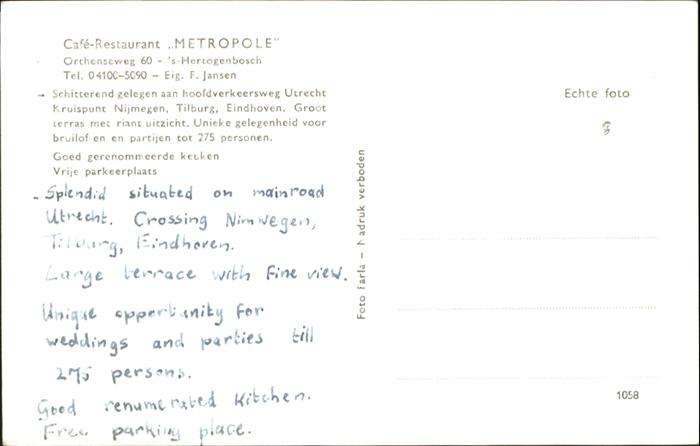 Café-Restaurant „METROPOLE"
Orthenseweg 60 – 's-Hertogenbosch
Tel. 04100-5090 – Eig. F. Jansen
– Schitterend gelegen aan hoofdverkeersweg Utrecht
Kruispunt Nijmegen, Tilburg, Eindhoven. Groot
terras met riant uitzicht. Unieke gelegenheid voor
bruiloften en partijen tot 275 personen.
Goed gerenommeerde keuken
Vrije parkeerplaats
- Splendid situated on mainroad
Utrecht. Crossing Nimwegen,
Tilburg, Eindhoven.
Large terrace with fine view.
Unique opportunity for
weddings and parties till
275 persons.
Good renumerated Kitchen.
Free parking place.
Foto Farla – Nadruk verboden
Echte foto
1058